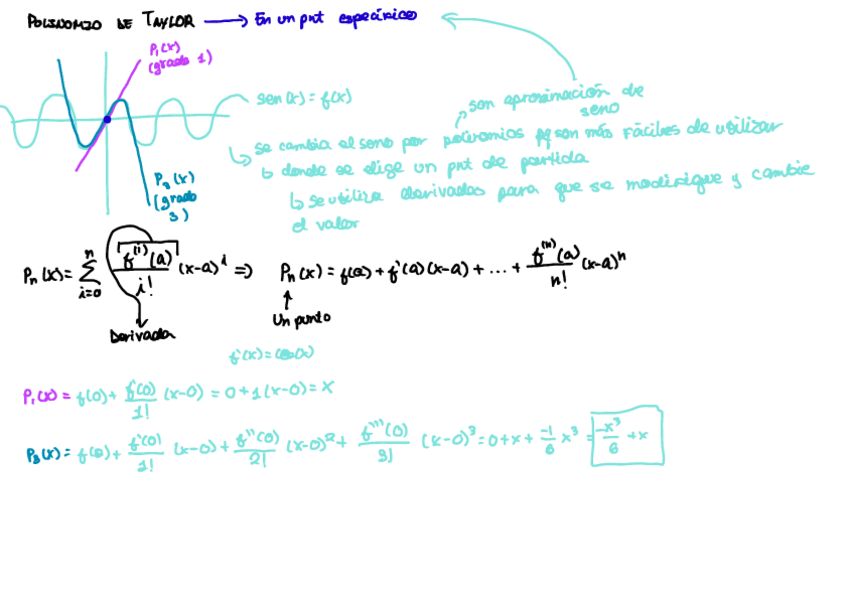 POLINOMIO DE TAYLOR → En un pnt específico
P₁(x)
(grado 1)
sen(x) = f(x)
son aproximación de
seno
se cambia el seno por polinomios pq son más fáciles de utilizar
donde se elige un pnt de partida
P₃(x)
(grado
3)
se utiliza derivadas para que se modifique y cambie
el valor
Pₙ(x) = Σ_{i=0}^{n} f⁽ⁱ⁾(a)/i! (x-a)ⁱ => Pₙ(x) = f(a) + f'(a)(x-a) + ... + f⁽ⁿ⁾(a)/n! (x-a)ⁿ
Un punto
Derivada
f'(x) = cos(x)
P₁(x) = f(0) + f'(0)/1! (x-0) = 0 + 1(x-0) = x
P₃(x) = f(0) + f'(0)/1! (x-0) + f''(0)/2! (x-0)² + f'''(0)/3! (x-0)³ = 0 + x + -1/6 x³ = -x³/6 + x